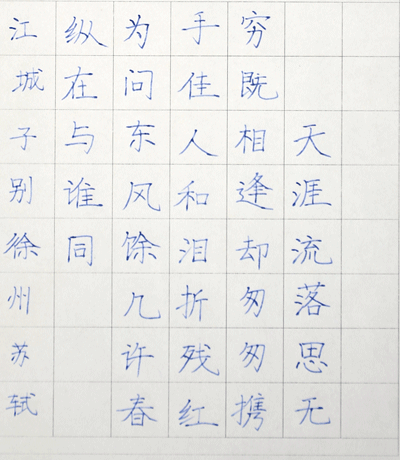 天涯流落思无
穷既相逢却匆匆携
手佳人和泪折残红
为问东风馀几许春
纵在与谁同
江城子别徐州苏轼